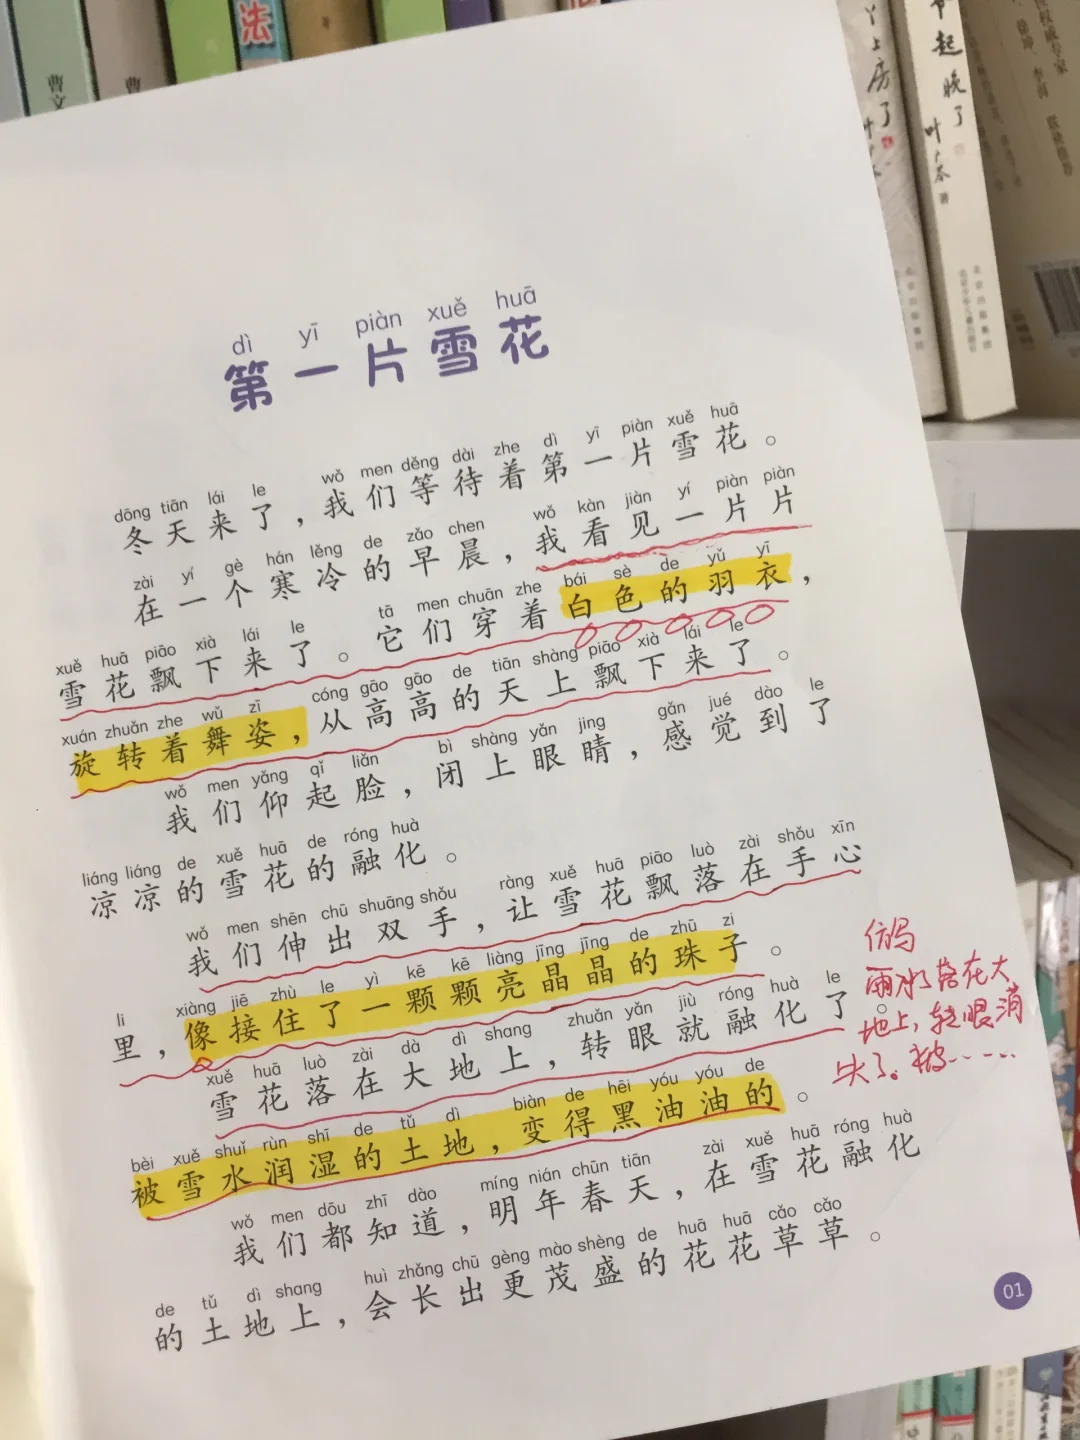 法
曹文
丫上房了
早起晚了
叶广芩 著
dì yī piàn xuě huā
第一片雪花
dōng tiān lái le wǒ men děng dài zhe dì yī piàn xuě huā
冬天来了，我们等待着第一片雪花。
zài yí gè hán lěng de zǎo chen wǒ kàn jiàn yí piàn piàn
在一个寒冷的早晨，我看见一片片
xuě huā piāo xià lái le tā men chuān zhe bái sè de yǔ yī
雪花飘下来了。它们穿着白色的羽衣，
xuán zhuǎn zhe wǔ zī cóng gāo gāo de tiān shàng piāo xià lái le
旋转着舞姿，从高高的天上飘下来了。
wǒ men yǎng qǐ liǎn bì shàng yǎn jing gǎn jué dào le
我们仰起脸，闭上眼睛，感觉到了
liáng liáng de xuě huā de róng huà
凉凉的雪花的融化。
wǒ men shēn chū shuāng shǒu ràng xuě huā piāo luò zài shǒu xīn
我们伸出双手，让雪花飘落在手心
li xiàng jiē zhù le yì kē kē liàng jīng jīng de zhū zi
里，像接住了一颗颗亮晶晶的珠子。
xuě huā luò zài dà dì shang zhuǎn yǎn jiù róng huà le
雪花落在大地上，转眼就融化了。
bèi xuě shuǐ rùn shī de tǔ dì biàn de hēi yóu yóu de
被雪水润湿的土地，变得黑油油的。
wǒ men dōu zhī dào míng nián chūn tiān zài xuě huā róng huà
我们都知道，明年春天，在雪花融化
de tǔ dì shang huì zhǎng chū gèng mào shèng de huā huā cǎo cǎo
的土地上，会长出更茂盛的花花草草。
仿写
雨水落在大
地上，转眼消
失了。被……
01